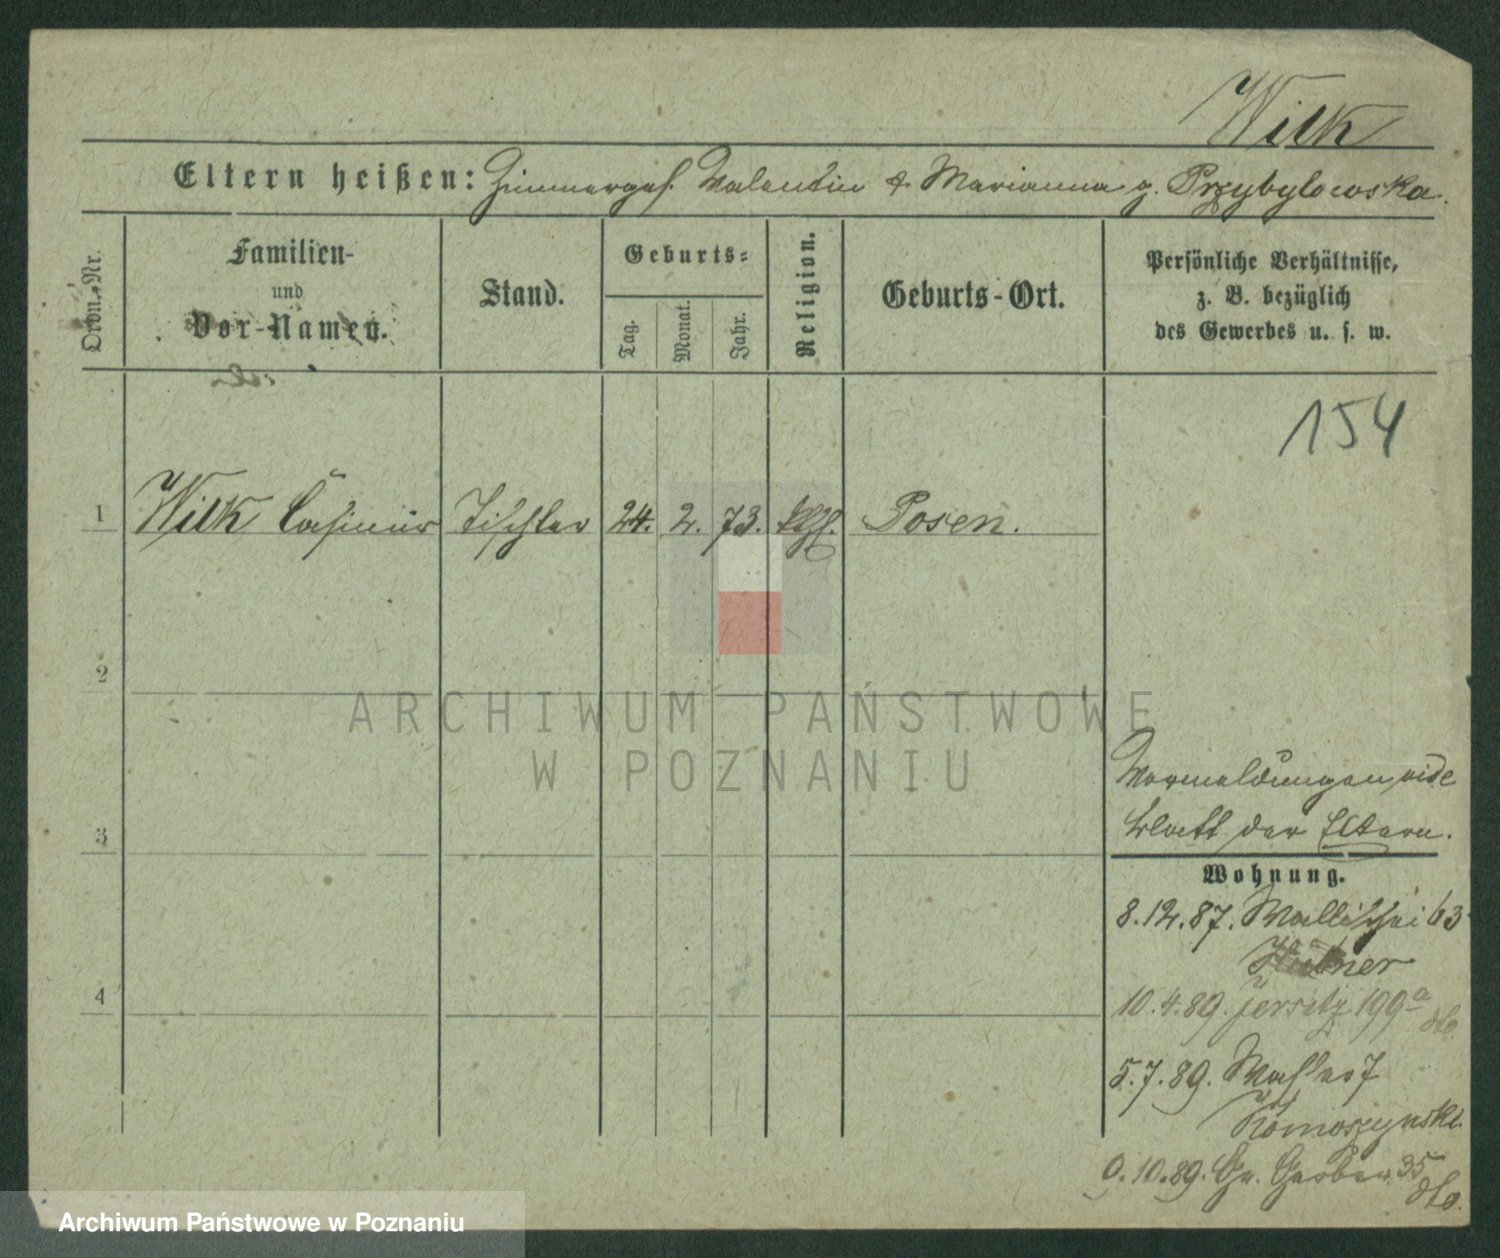 Wilk
Eltern heißen: Zimmerges. Valentin & Marianna g. Przybylowska.
Ordn.-Nr.
Familien-
und
Vor-Namen.
Stand.
Geburts-
Tag.
Monat.
Jahr.
Religion.
Geburts-Ort.
Persönliche Verhältnisse,
z. B. bezüglich
des Gewerbes u. s. w.
154
1 Wilk Casimir Tischler 24. 2. 73. kth. Posen.
2
ARCHIWUM PAŃSTWOWE
W POZNANIU
Vormeldungen vide
3 Blatt der Eltern.
Wohnung.
8.12.87. Wallischei 63
Hübner
4
10.4.89. Jersitz 199a dto.
5.7.89. Wasser 7
Komoszynski
9.10.89. Gr. Gerber 35
dto.
Archiwum Państwowe w Poznaniu